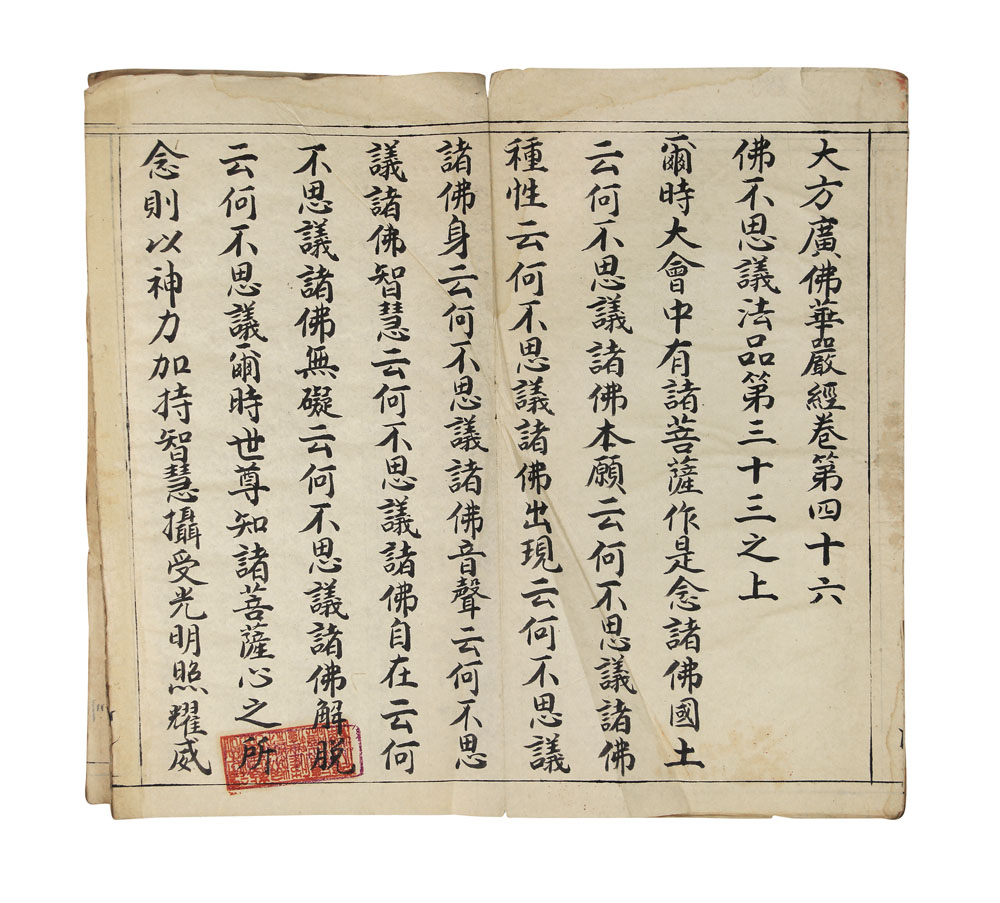 大方廣佛華嚴經卷第四十六
佛不思議法品第三十三之上
爾時大會中有諸菩薩作是念諸佛國土
云何不思議諸佛本願云何不思議諸佛
種性云何不思議諸佛出現云何不思議
諸佛身云何不思議諸佛音聲云何不思
議諸佛智慧云何不思議諸佛自在云何
不思議諸佛無礙云何不思議諸佛解脫
云何不思議爾時世尊知諸菩薩心之所
念則以神力加持智慧攝受光明照耀威